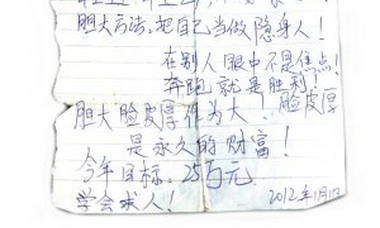 胆大方法:把自己当做隐身人!
在别人眼中不是焦点!
奔跑就是胜利!
胆大脸皮厚作为大!脸皮厚
是永久的财富!
今年目标:25万元
学会求人!
2012年1月1日